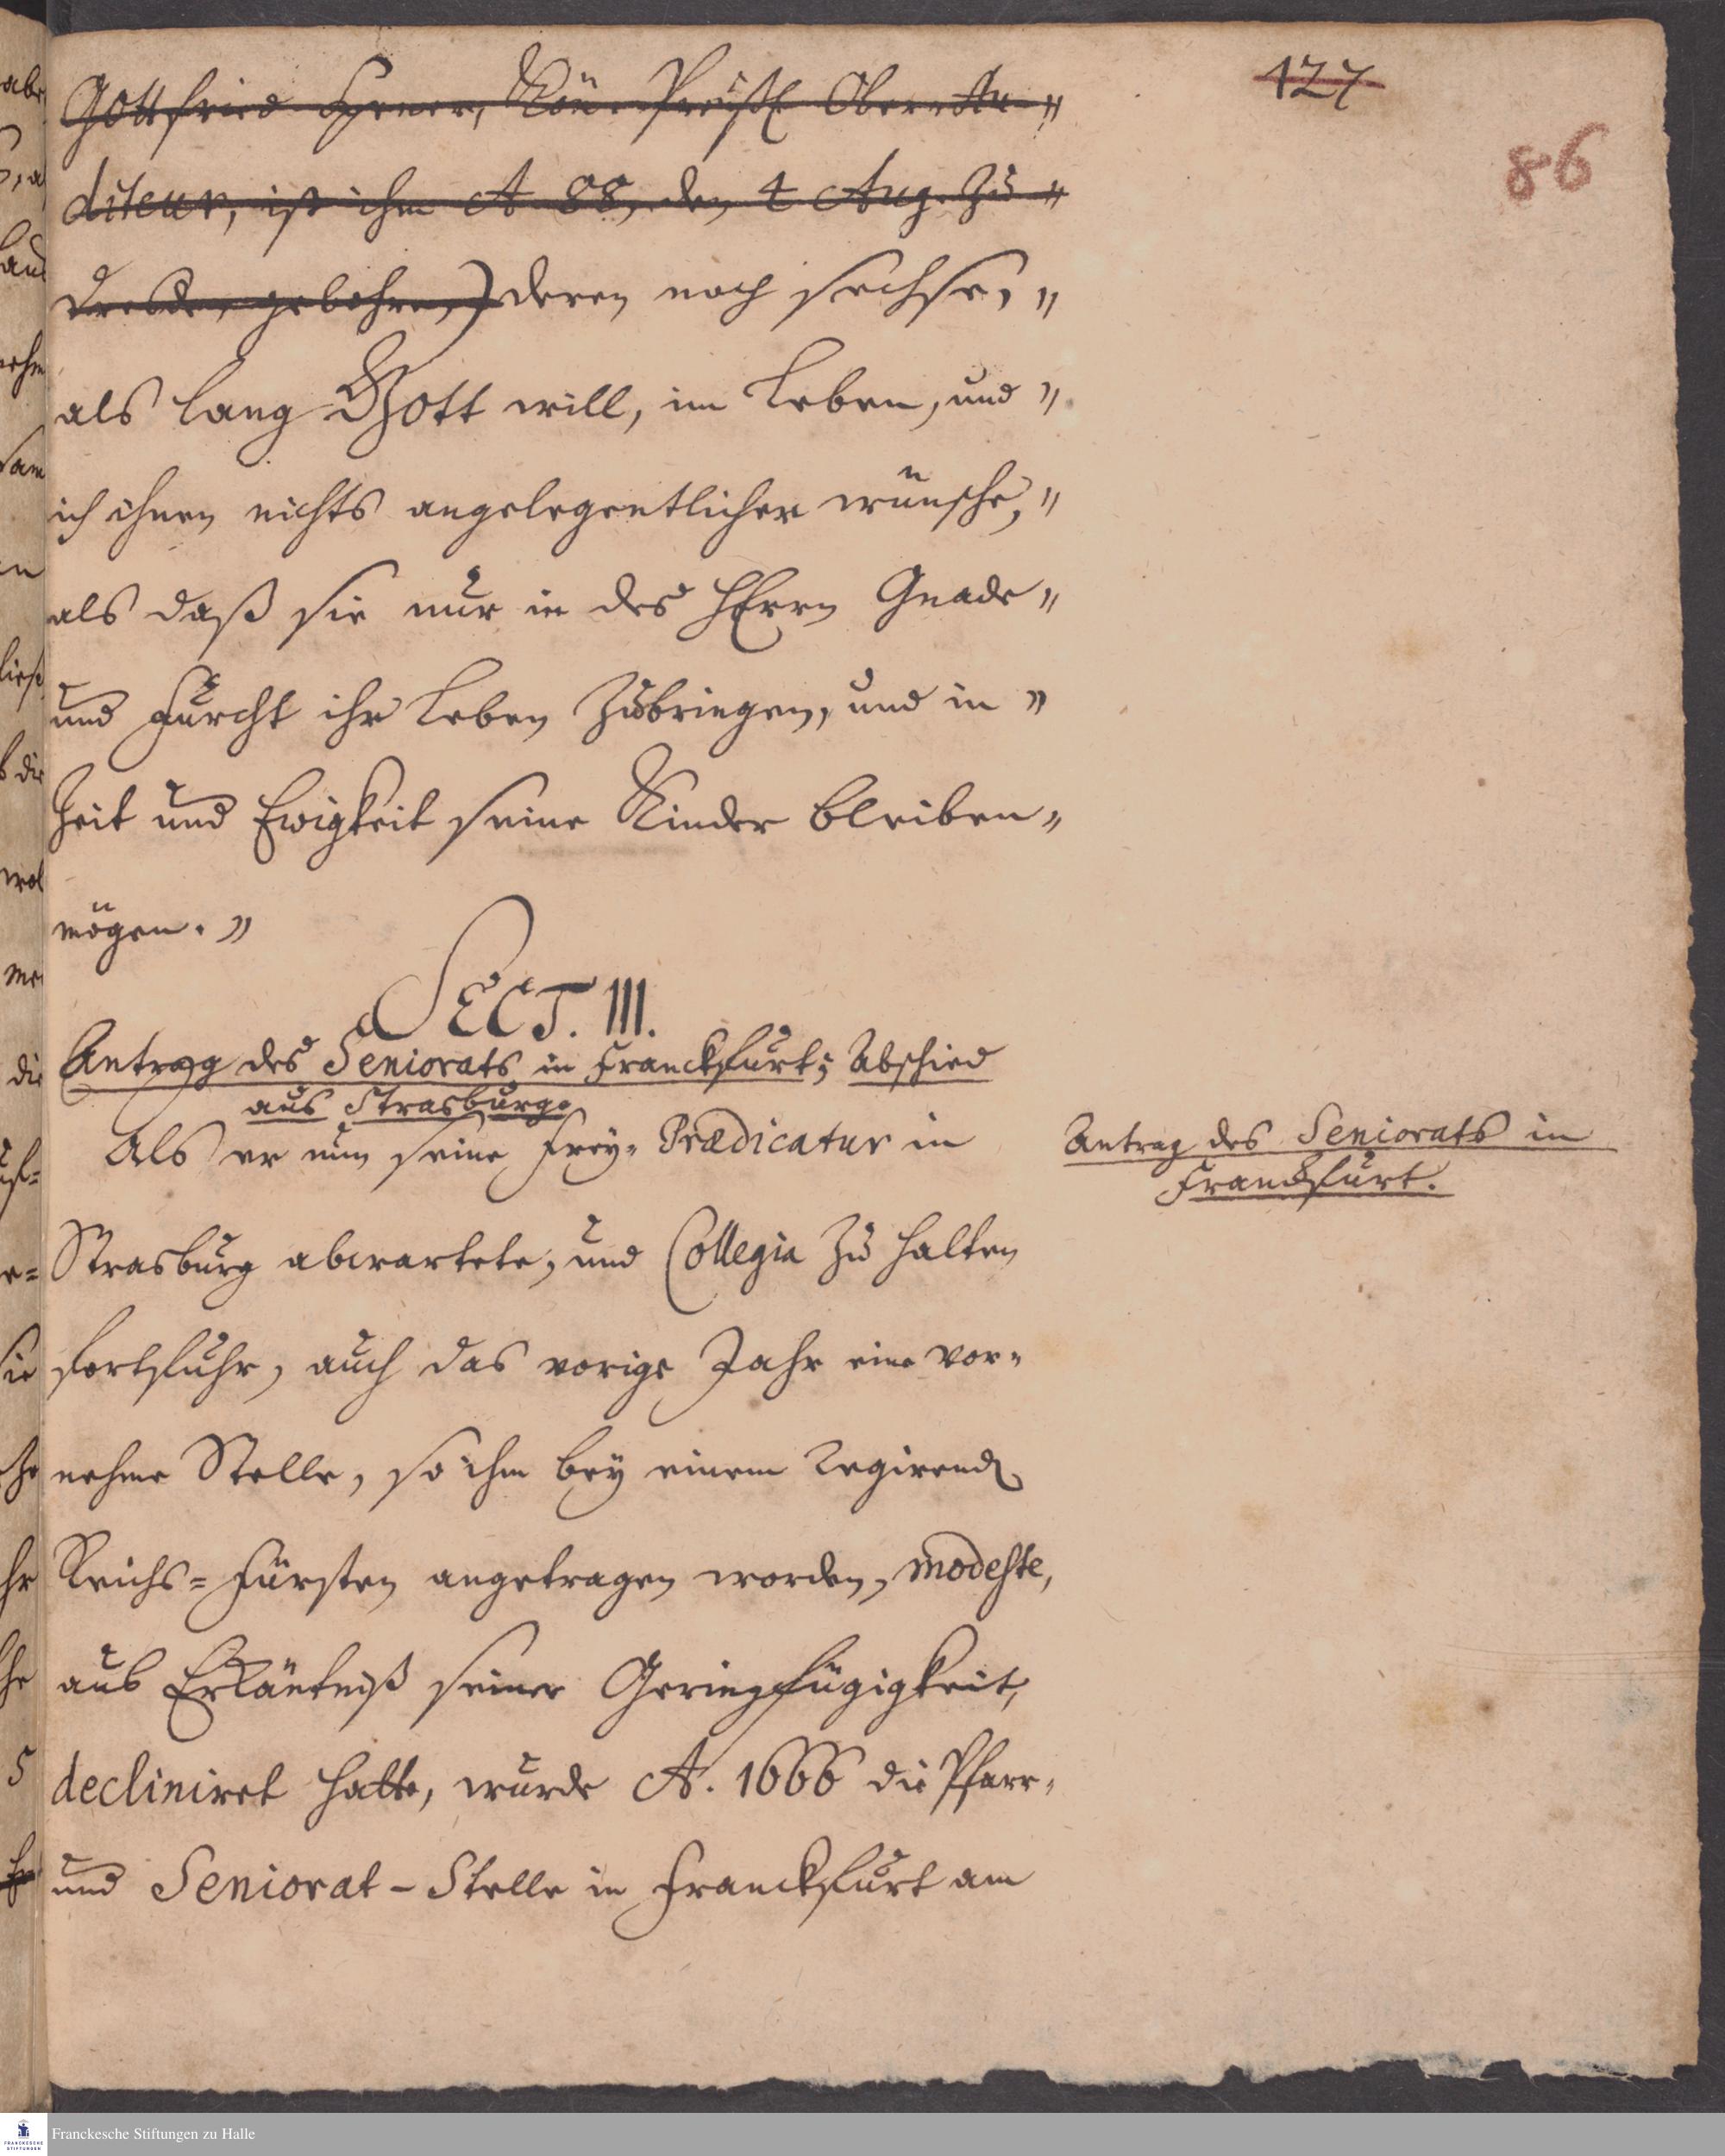 127
86
Gottfried Spener, Kön. Preußl. Ober-Au- „
diteur, ist ihm A. 88, den 4 Aug. zu „
Dresden gebohren,) deren noch sechse, „
als lang Gott will, im Leben, und „
ich ihnen nichts angelegentlicher wünsche, „
als daß sie nur in des HErrn Gnade „
und Furcht ihr Leben zubringen, und in „
Zeit und Ewigkeit seine Kinder bleiben „
mögen. „
SECT. III.
Antrag des Seniorats in Franckfurt; Abschied
aus Strasburg.
Als er nun seine Frey-Prædicatur in
Antrag des Seniorats in
Franckfurt.
Strasburg abwartete, und Collegia zu halten
fortfuhr, auch das vorige Jahr eine vor-
nehme Stelle, so ihm bey einem regirend
Reichs-Fürsten angetragen worden, modeste,
aus Erkäntniß seiner Geringfügigkeit,
decliniret hatte, wurde A. 1666 die Pfarr-
und Seniorat-Stelle in Franckfurt am
Franckesche Stiftungen zu Halle